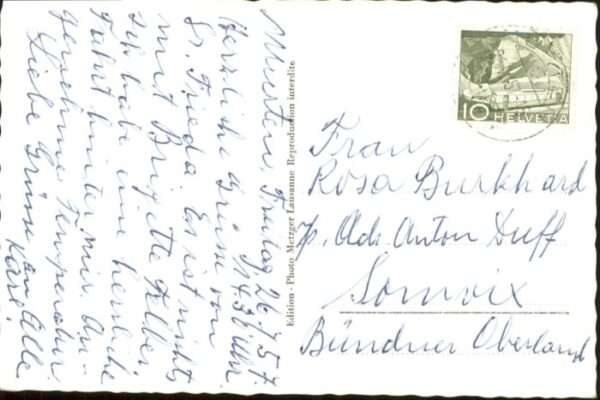 Murten, Freitag 26.7.57.
14.30 Uhr.
Herzliche Grüsse von
Sr. Frieda. Es ist nichts
mit Brigette Felber.
Ich habe eine herrliche
Fahrt hinter mir. An-
genehme Temperatur.
Liebe Grüsse an Alle
Edition - Photo Metzger Lausanne Reproduction interdite
10 HELVETIA
Frau
Rosa Burkhard
p. Adr. Anton Duff
Somvix
Bündner Oberland